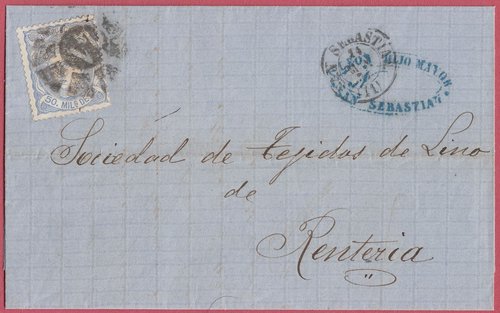 50. MILES
S. SEBASTIAN
14
(11)
HIJO MAYOR
SEBASTIAN
Sociedad de Tejidos de Lino
de
Renteria